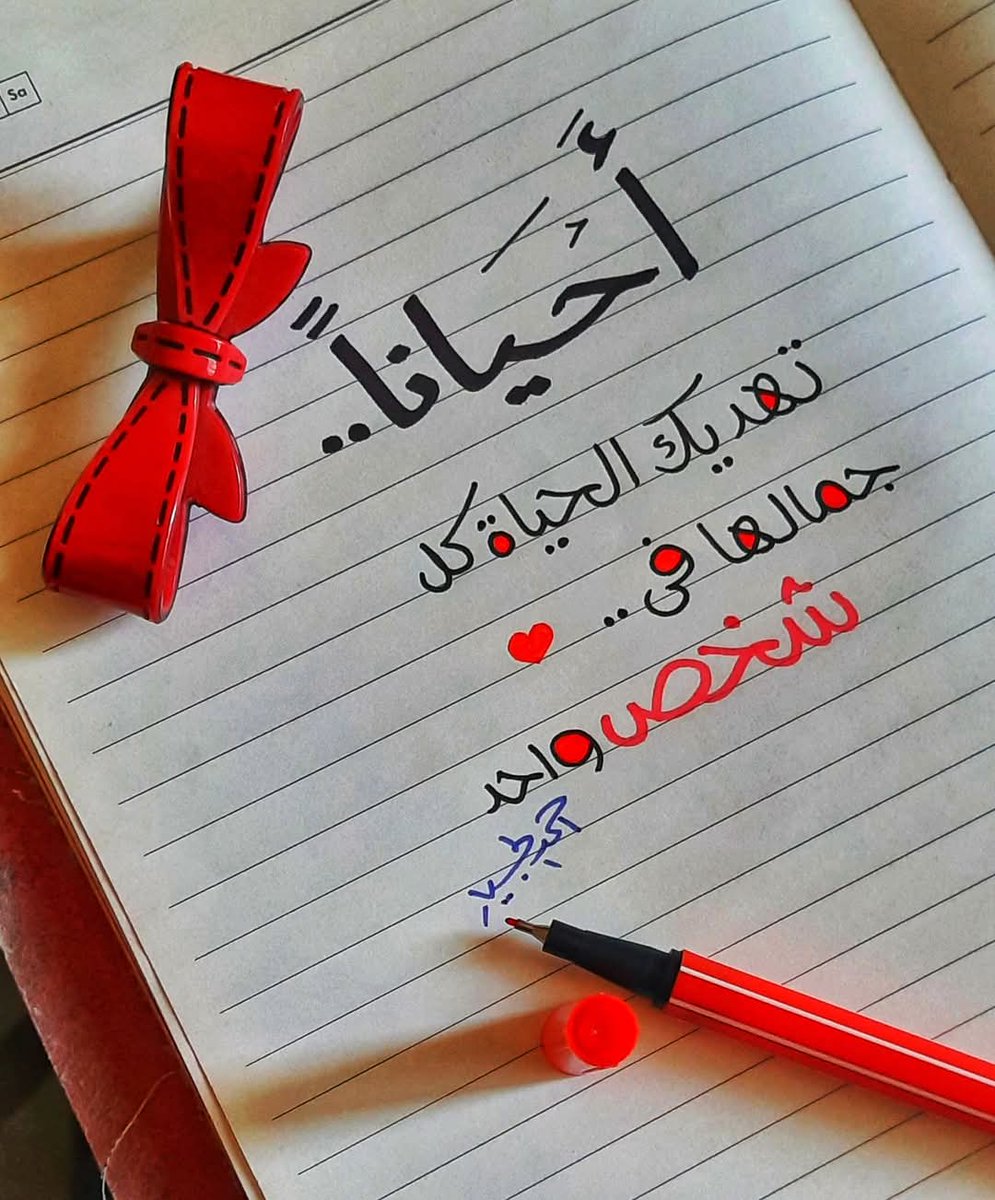 Sa
أَحْيَاناً..
تهديك الحياة كل
جمالها فى ..
شخص واحد